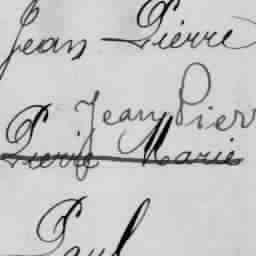 Jean-Pierre
Jean Pierr
Pierre Marie
Paul